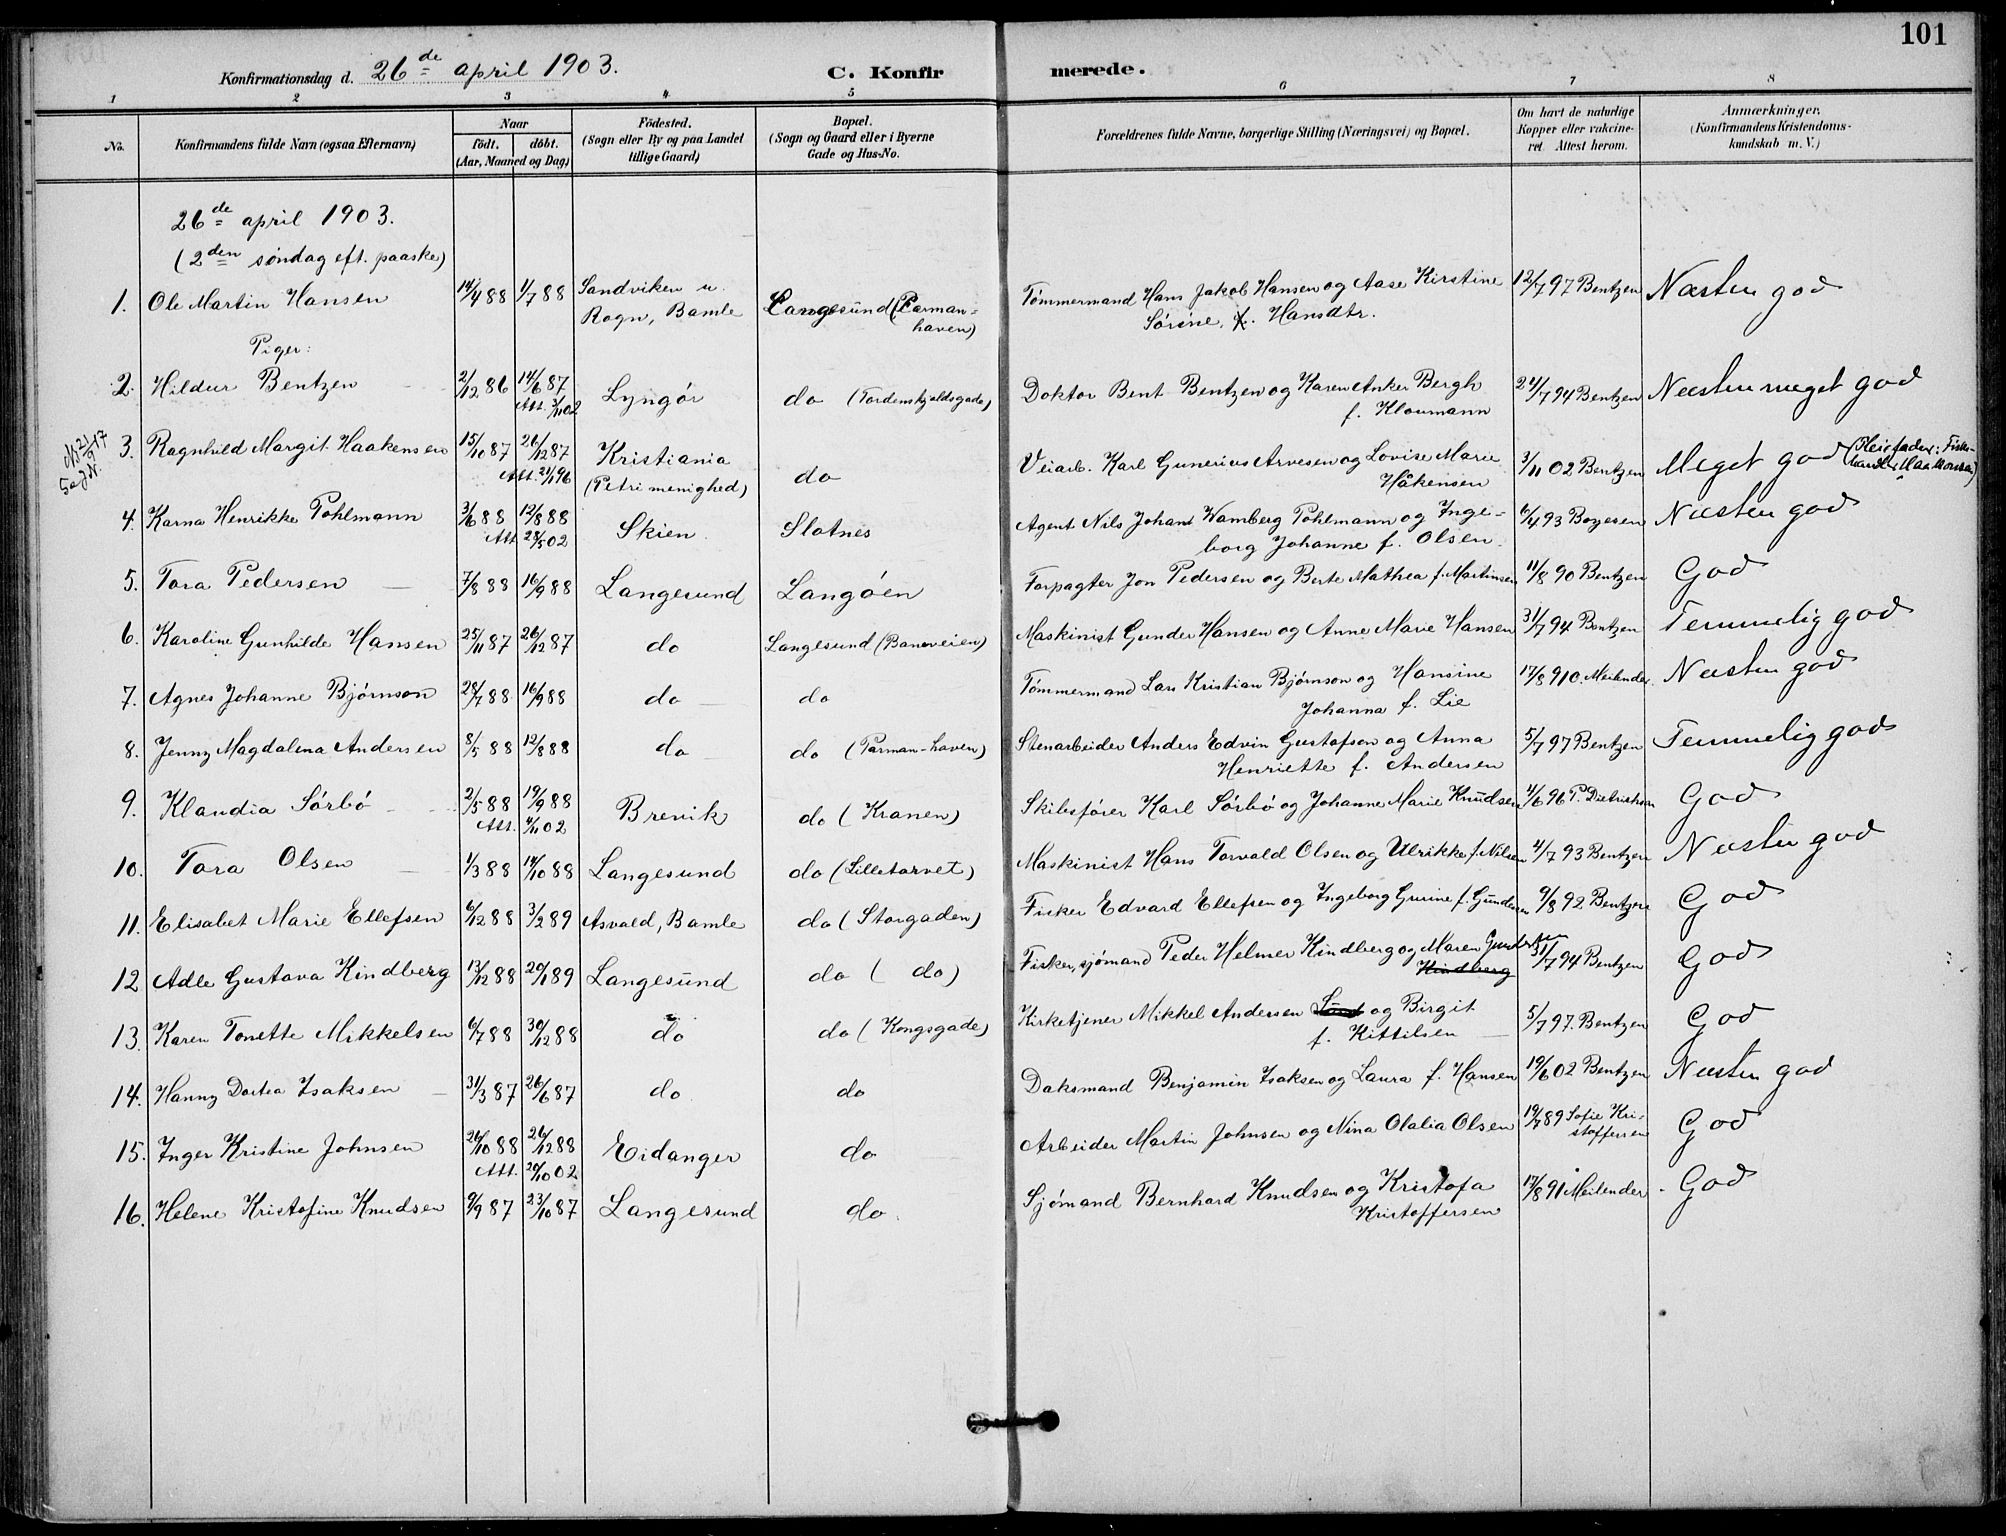 101
Konfirmationsdag d. 26de april 1903. C. Konfirmerede.
1 2 3 4 5 6 7 8
No. Konfirmandens fulde Navn (ogsaa Efternavn) Naar født. døbt. (Aar, Maaned og Dag) Fødested. (Sogn eller By og paa Landet tillige Gaard) Bopæl. (Sogn og Gaard eller i Byerne Gade og Hus-No. Forældrenes fulde Navne, borgerlige Stilling (Næringsvei) og Bopæl. Om havt de naturlige Kopper eller vakcineret. Attest herom. Anmærkninger. (Konfirmandens Kristendomskundskab m. V.)
26de april 1903.
(2den søndag eft. paaske)
1. Ole Martin Hansen 14/4 88 1/7 88 Sandviken u. Rogn, Bamle Langesund (Parmanhaven) Tømmermand Hans Jakob Hansen og Aase Kirstine Sørine, f. Hansdtr. 12/7 97 Bentzen Næsten god
Piger:
2. Hildur Bentzen 2/12 86 14/6 87 Att. 3/11 02 Lyngør do (Tordenskjoldsgade) Doktor Bent Bentzen og Karen Anker Bergh f. Kloumann 24/7 94 Bentzen Næsten meget god
3. Ragnhild Margit Haakensen 15/10 87 26/12 87 Att. 21/1 96 Kristiania (Petri menighed) do Veiarb. Karl Gunerius Arvesen og Lovise Marie Håkensen 3/11 02 Bentzen Meget god
4. Karna Henrikke Pohlmann 3/6 88 12/8 88 Att. 28/5 02 Skien Slotnes Agent Nils Johan Wamberg Pohlmann og Ingeborg Johanne f. Olsen. 6/4 93 Boyesen Næsten god
5. Tora Pedersen 7/8 88 16/9 88 Langesund Langøen Forpagter Jon Pedersen og Berte Mathea f. Martinsen 11/8 90 Bentzen God
6. Karoline Gunhilde Hansen 25/11 87 26/12 87 do Langesund (Baneveien) Maskinist Gunder Hansen og Anne Marie Hansen 31/7 94 Bentzen Temmelig god
7. Agnes Johanne Bjørnson 28/7 88 16/9 88 do do Tømmermand Lars Kristian Bjørnson og Hansine Johanna f. Lie 17/8 91 O. Meilender. Næsten god
8. Jenny Magdalena Andersen 8/5 88 12/8 88 do do (Parman-haven) Stenarbeider Anders Edvin Gustafson og Anna Henriette f. Andersen 5/7 97 Bentzen Temmelig god
9. Klaudia Sørbø 2/5 88 19/9 88 Att. 4/11 02 Brevik do (Kranen) Skibsfører Karl Sørbø og Johanne Marie Knudsen 4/6 96 P. Dietrichson God
10. Tora Olsen 1/3 88 14/10 88 Langesund do (Lilletorvet) Maskinist Hans Torvald Olsen og Ulrikke f. Nilsen 4/7 93 Bentzen Næsten god
11. Elisabet Marie Ellefsen 6/12 88 3/2 89 Asvald, Bamle do (Storgaden) Fisker Edvard Ellefsen og Ingeborg Gurine f. Gundersen 9/8 92 Bentzen God
12 Adle Gustava Kindberg 13/12 88 20/1 89 Langesund do ( do ) Fisker, sjømand Peder Helmer Kindberg og Maren Gundersen Kindberg 31/7 94 Bentzen God
13. Karen Tonette Mikkelsen 6/7 88 30/12 88 do do (Kongsgade) Kirketjener Mikkel Andersen og Birgit f. Kittilsen 5/7 97. Bentzen God
14. Hanny Dortea Isaksen 31/3 87 26/6 87 do do Daksmand Benjamin Isaksen og Laura f. Hansen 19/6 02 Bentzen Næsten god
15. Inger Kristine Johnsen 26/10 88 26/12 88 Att. 20/10 02 Eidanger do Arbeider Martin Johnsen og Nina Olalia Olsen 19/7 89 Sofie Kristoffersen God
16. Helene Kristofine Knudsen 9/9 87 23/10 87 Langesund do. Sjømand Bernhard Knudsen og Kristofa Kristoffersen 17/8 91 Meilender. God